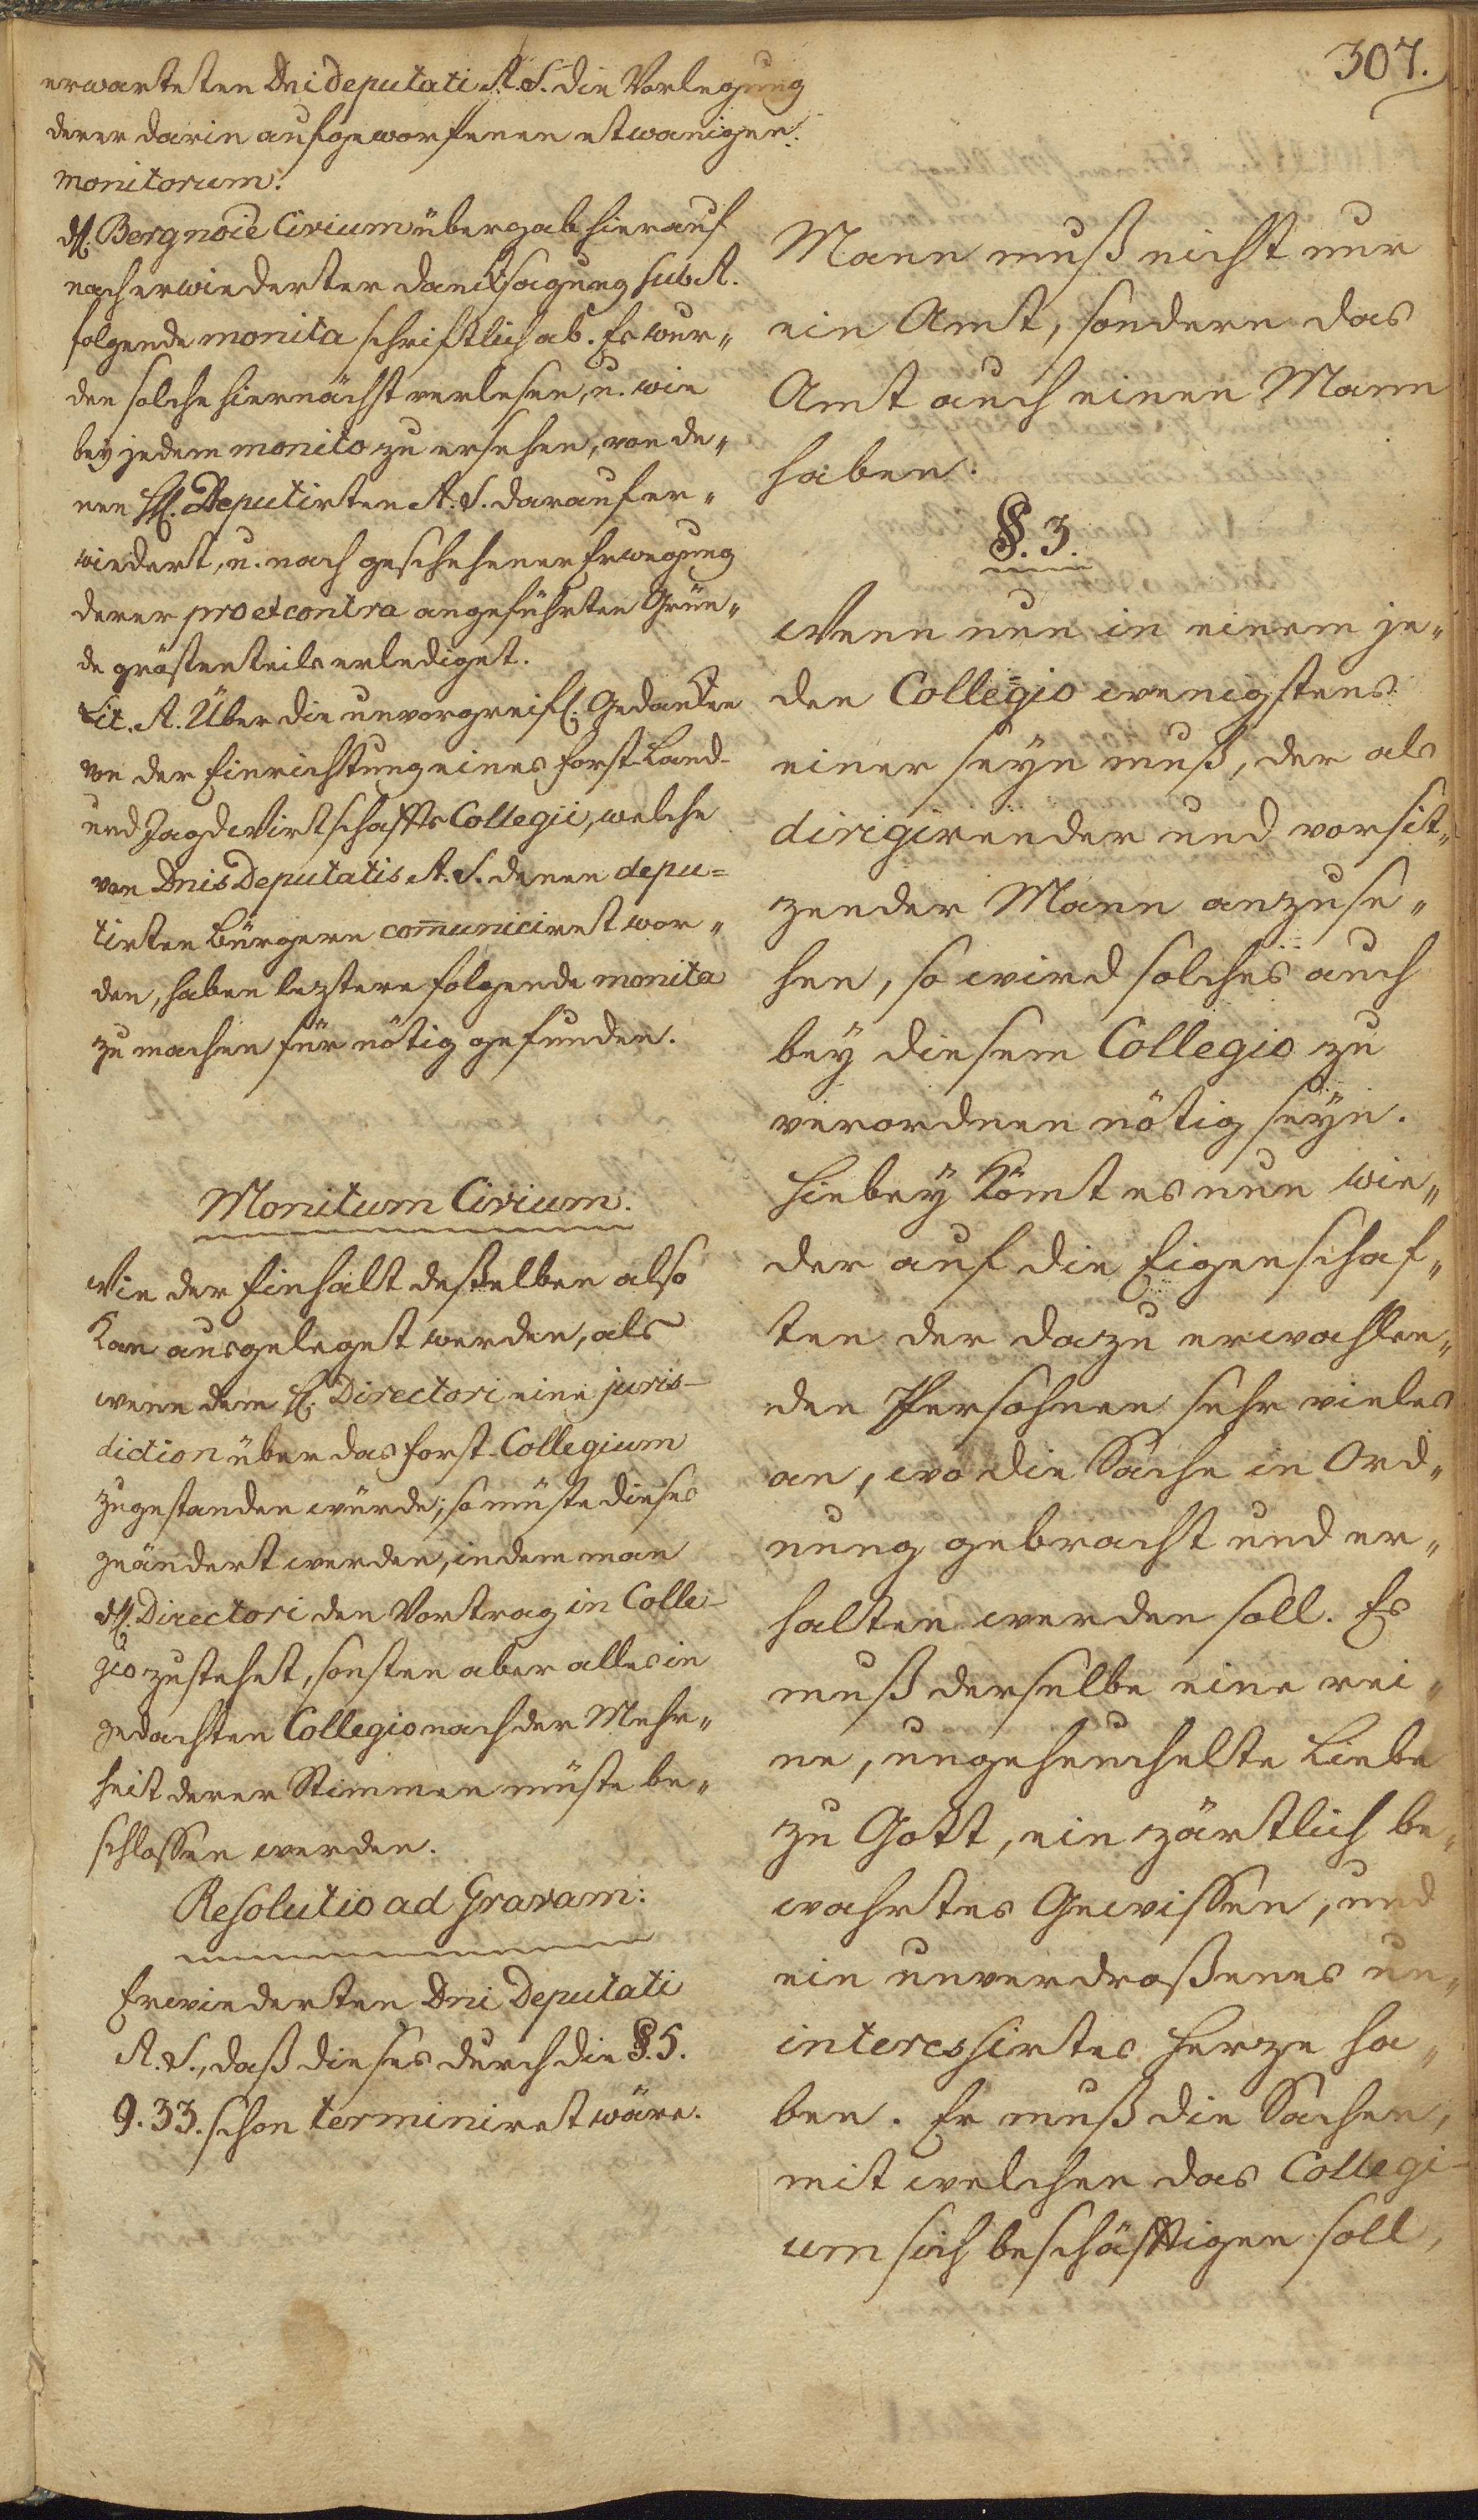 307.
erwarteten Dni deputati A. S. die Vorlegung
derer darin aufgeworfenen etwanigen
monitorum.
H. Berg noie Civium übergab hierauf
nach erwiederter Dancksagung sub A.
folgende monita schriftlich ab. Es wur„
den solche hiernächst verlesen, u. wie
bey jedem monito zu ersehen, von de„
nen HH. Deputirten A. S. darauf er„
wiedert, u. nach geschehener Erwegung
derer pro et contra angeführten Grün„
de grösten teils erlediget.
Lit. A. Über die unvorgreifl. Gedancken
von der Einrichtung eines Forst- Land-
und Jagd Wirtschaffts Collegii, welche
von Dnis Deputatis A. S. denen depu=
tirten Bürgern com̅uniciret wor„
den, haben leztere folgende monita
zu machen für nötig gefunden.
Monitum Civium.
Wie der Einhalt deßelben also
kan ausgeleget werden, als
wenn dem H. Directori eine juris-
diction über das Forst-Collegium
zugestanden würde, so müste dieses
geändert werden, indem man
H. Directori den Vortrag in Colle-
gio zustehet, sonsten aber alles in
gedachten Collegio nach der Mehr„
heit derer Stimmen müste be„
schloßen werden.
Resolutio ad Gravam:
Erwiederten Dni Deputati
A. S., daß dieses durch die §. 5.
9. 33. schon terminiret wäre.
Mann muß nicht nur
ein Amt, sondern das
Amt auch einen Mann
haben.
§. 3.
Wenn nun in einem je„
den Collegio wenigstens
einer seyn muß, der als
dirigirender und vorsit„
zender Mann anzuse„
hen, so wird solches auch
bey diesem Collegio zu
verordnen nötig seyn.
Hiebey kömt es nun wie„
der auf die Eigenschaf„
ten der dazu erwahlen„
den Persohnen sehr vieles
an, wo die Sache in Ord„
nung gebracht und er„
halten werden soll. Es
muß derselbe eine rei„
ne, ungeheuchelte Liebe
zu Gott, ein zärtlich be„
wahrtes Gewißen, und
ein unverdroßenes un„
interessirtes Herze ha„
ben. Er muß die Sachen,
mit welchen das Collegi-
um sich beschäfftigen soll,